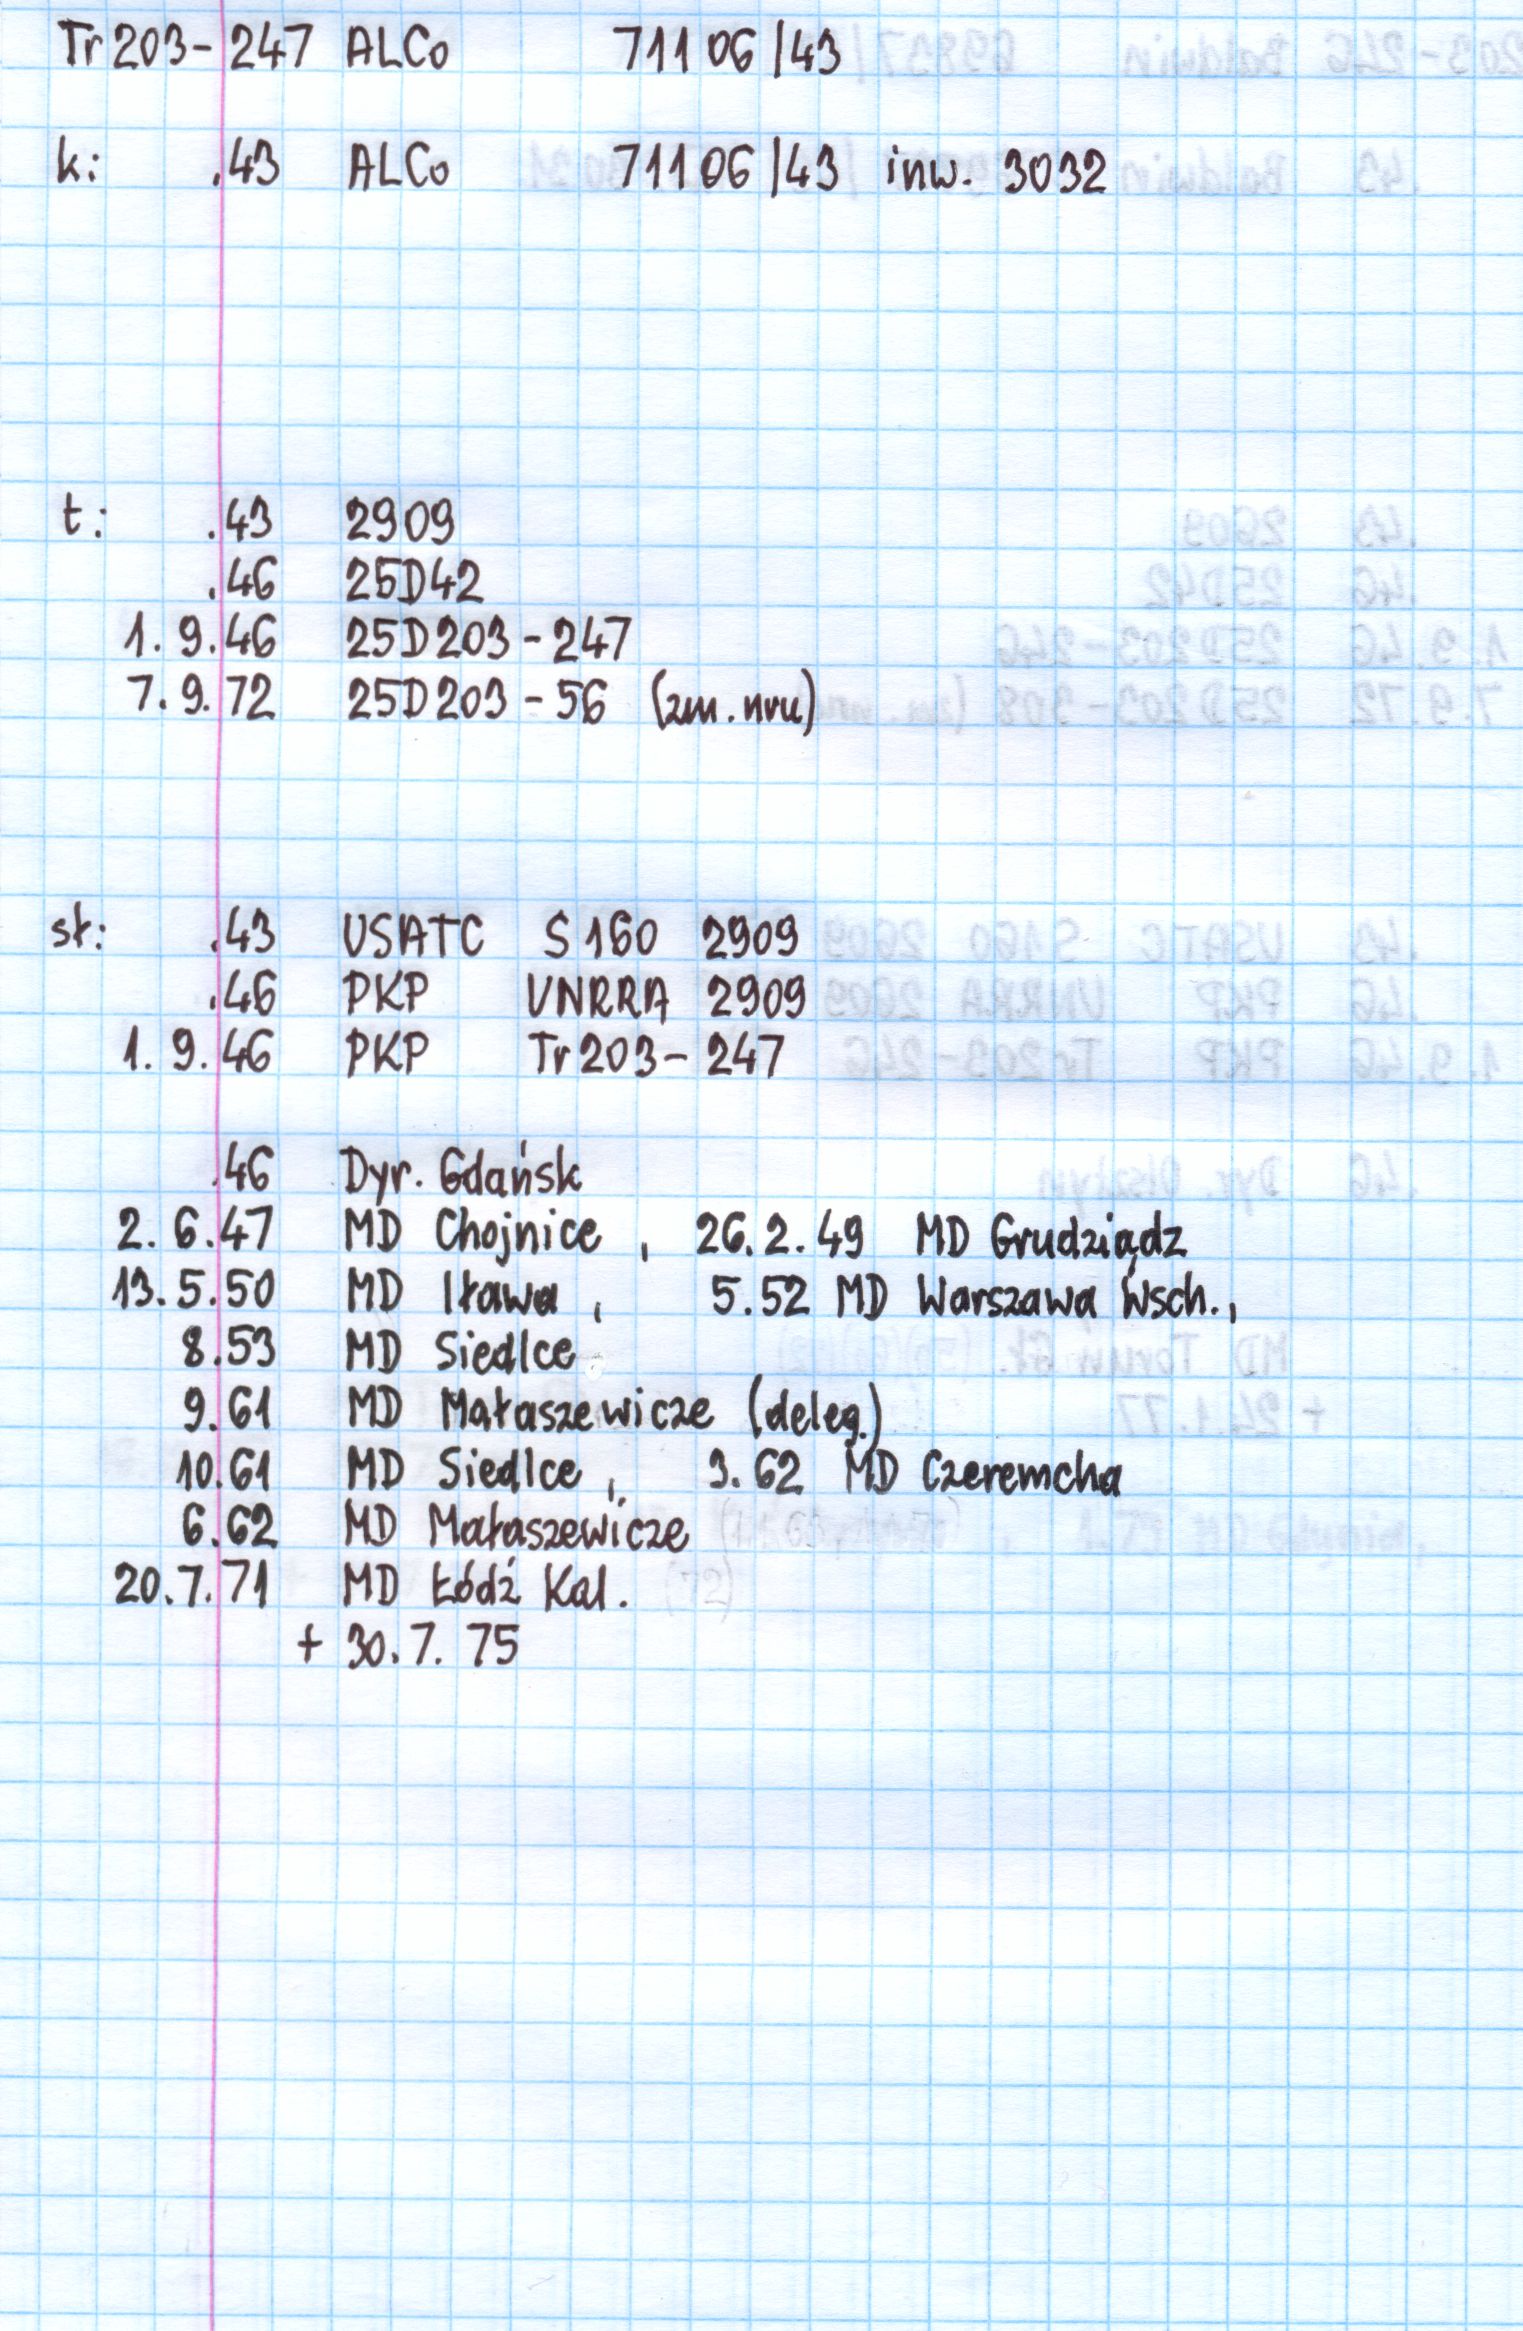 Tr203-247 ALCo 71106/43
k: .43 ALCo 71106/43 inw. 3032
t: .43 2909
.46 25D42
1.9.46 25D203-247
7.9.72 25D203-56 (zm. nru)
st: .43 USATC S160 2909
.46 PKP UNRRA 2909
1.9.46 PKP Tr203-247
.46 Dyr. Gdańsk
2.6.47 MD Chojnice, 26.2.49 MD Grudziądz
13.5.50 MD Iława, 5.52 MD Warszawa Wsch.,
8.53 MD Siedlce
9.61 MD Małaszewicze (deleg.)
10.61 MD Siedlce, 3.62 MD Czeremcha
6.62 MD Małaszewicze
20.7.71 MD Łódź Kal.
+ 30.7.75